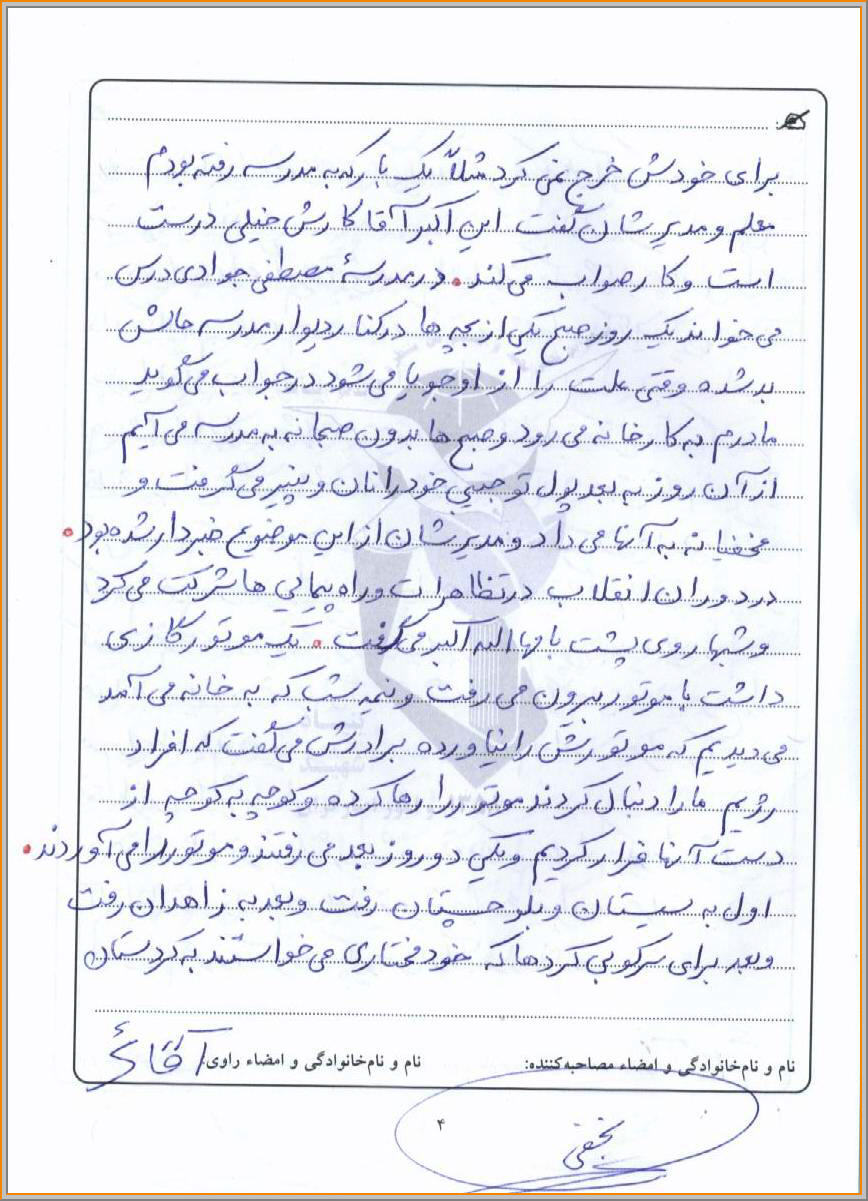 برای خودش خرج نمی کرد مثلاً یک بار که به مدرسه رفته بودم
معلم و مدیرشان گفت این اکبر آقا کارش خیلی درست
است و کار صواب می کند. در مدرسهٔ مصطفی جوادی درس
می خواند یک روز صبح یکی از بچه ها در کنار دیوار مدرسه حالش
بد شده وقتی علت را از او جویا می شود در جواب می گوید
مادرم به کارخانه می رود و صبح ها بدون صبحانه به مدرسه می آئیم
از آن روز به بعد پول توجیبی خود را نان و پنیر می گرفت و
مخفیانه به آنها می داد و مدیرشان از این موضوع خبردار شده بود.
در دوران انقلاب در تظاهرات و راه پیمایی ها شرکت می کرد
و شبها روی پشت بامها الله اکبر می گرفت. یک موتور گازی
داشت با موتور بیرون می رفت و نیمه شب که به خانه می آمد
می دیدیم که موتورش را نیاورده برادرش می گفت که افراد
رژیم ما را دنبال کردند موتور را رها کرده و کوچه به کوچه از
دست آنها فرار کردیم و یکی دو روز بعد می رفتند و موتور را می آوردند.
اول به سیستان و بلوچستان رفت و بعد به زاهدان رفت
و بعد برای سرکوبی کردها که خودمختاری می خواستند به کردستان
نام و نام‌خانوادگی و امضاء مصاحبه‌کننده:
نام و نام‌خانوادگی و امضاء راوی:
نجفی
۴